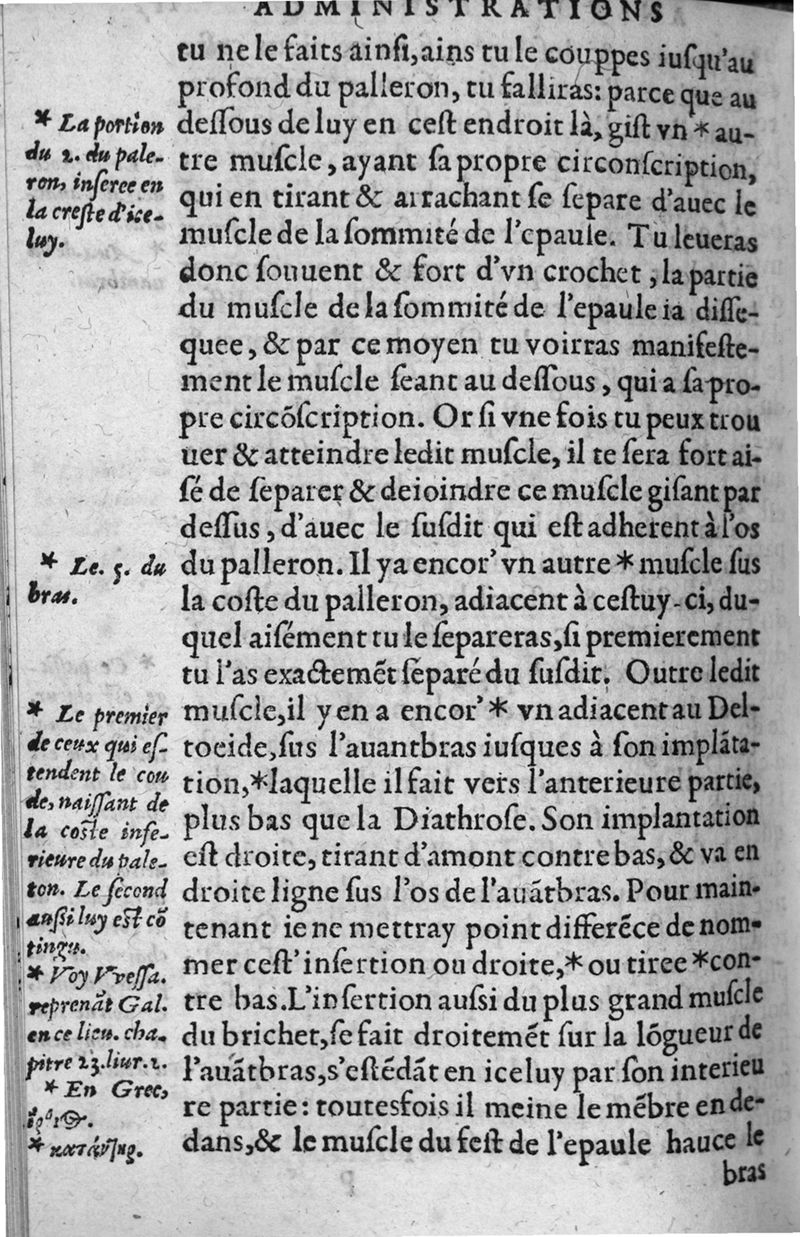 ADMINISTRATIONS
tu ne le faits ainſi, ains tu le couppes iuſqu'au
profond du palleron, tu falliras: parce que au
deſſous de luy en ceſt endroit là, giſt vn * au-
tre muſcle, ayant ſa propre circonſcription,
qui en tirant & arrachant ſe ſepare d'auec le
muſcle de la ſommité de l'epaule. Tu leueras
donc ſouuent & fort d'vn crochet, la partie
du muſcle de la ſommité de l'epaule ia diſſe-
quee, & par ce moyen tu voirras manifeſte-
ment le muſcle ſeant au deſſous, qui a ſa pro-
pre circõſcription. Or ſi vne fois tu peux trou
uer & atteindre ledit muſcle, il te ſera fort ai-
ſé de ſeparer & deioindre ce muſcle giſant par
deſſus, d'auec le ſuſdit qui eſt adherent à l'os
du palleron. Il ya encor' vn autre * muſcle ſus
la coſte du palleron, adiacent à ceſtuy-ci, du-
quel aiſément tu le ſepareras, ſi premierement
tu l'as exactemẽt ſeparé du ſuſdit. Outre ledit
muſcle, il y en a encor' * vn adiacent au Del-
toeide, ſus l'auantbras iuſques à ſon implãta-
tion, * laquelle il fait vers l'anterieure partie,
plus bas que la Diathroſe. Son implantation
eſt droite, tirant d'amont contre bas, & va en
droite ligne ſus l'os de l'auãtbras. Pour main-
tenant ie ne mettray point differẽce de nom-
mer ceſt' inſertion ou droite, * ou tiree * con-
tre bas. L'inſertion auſsi du plus grand muſcle
du brichet, ſe fait droitemẽt ſur la lõgueur de
l'auãtbras, s'eſtẽdãt en iceluy par ſon interieu
re partie: toutesfois il meine le mẽbre en de-
dans, & le muſcle du feſt de l'epaule hauce le
bras
* La portion
du 2. du pale-
ron, inſeree en
la creſte d'ice-
luy.
* Le. 5. du
bras.
* Le premier
de ceux qui eſ-
tendent le cou
de, naiſſant de
la coſte infe-
rieure du pale-
ron. Le ſecond
auſsi luy eſt cõ
tingu.
* Voy Veſſa.
reprenãt Gal.
en ce lieu. cha-
pitre 23. liur. 2.
* En Grec,
* κατάντης.